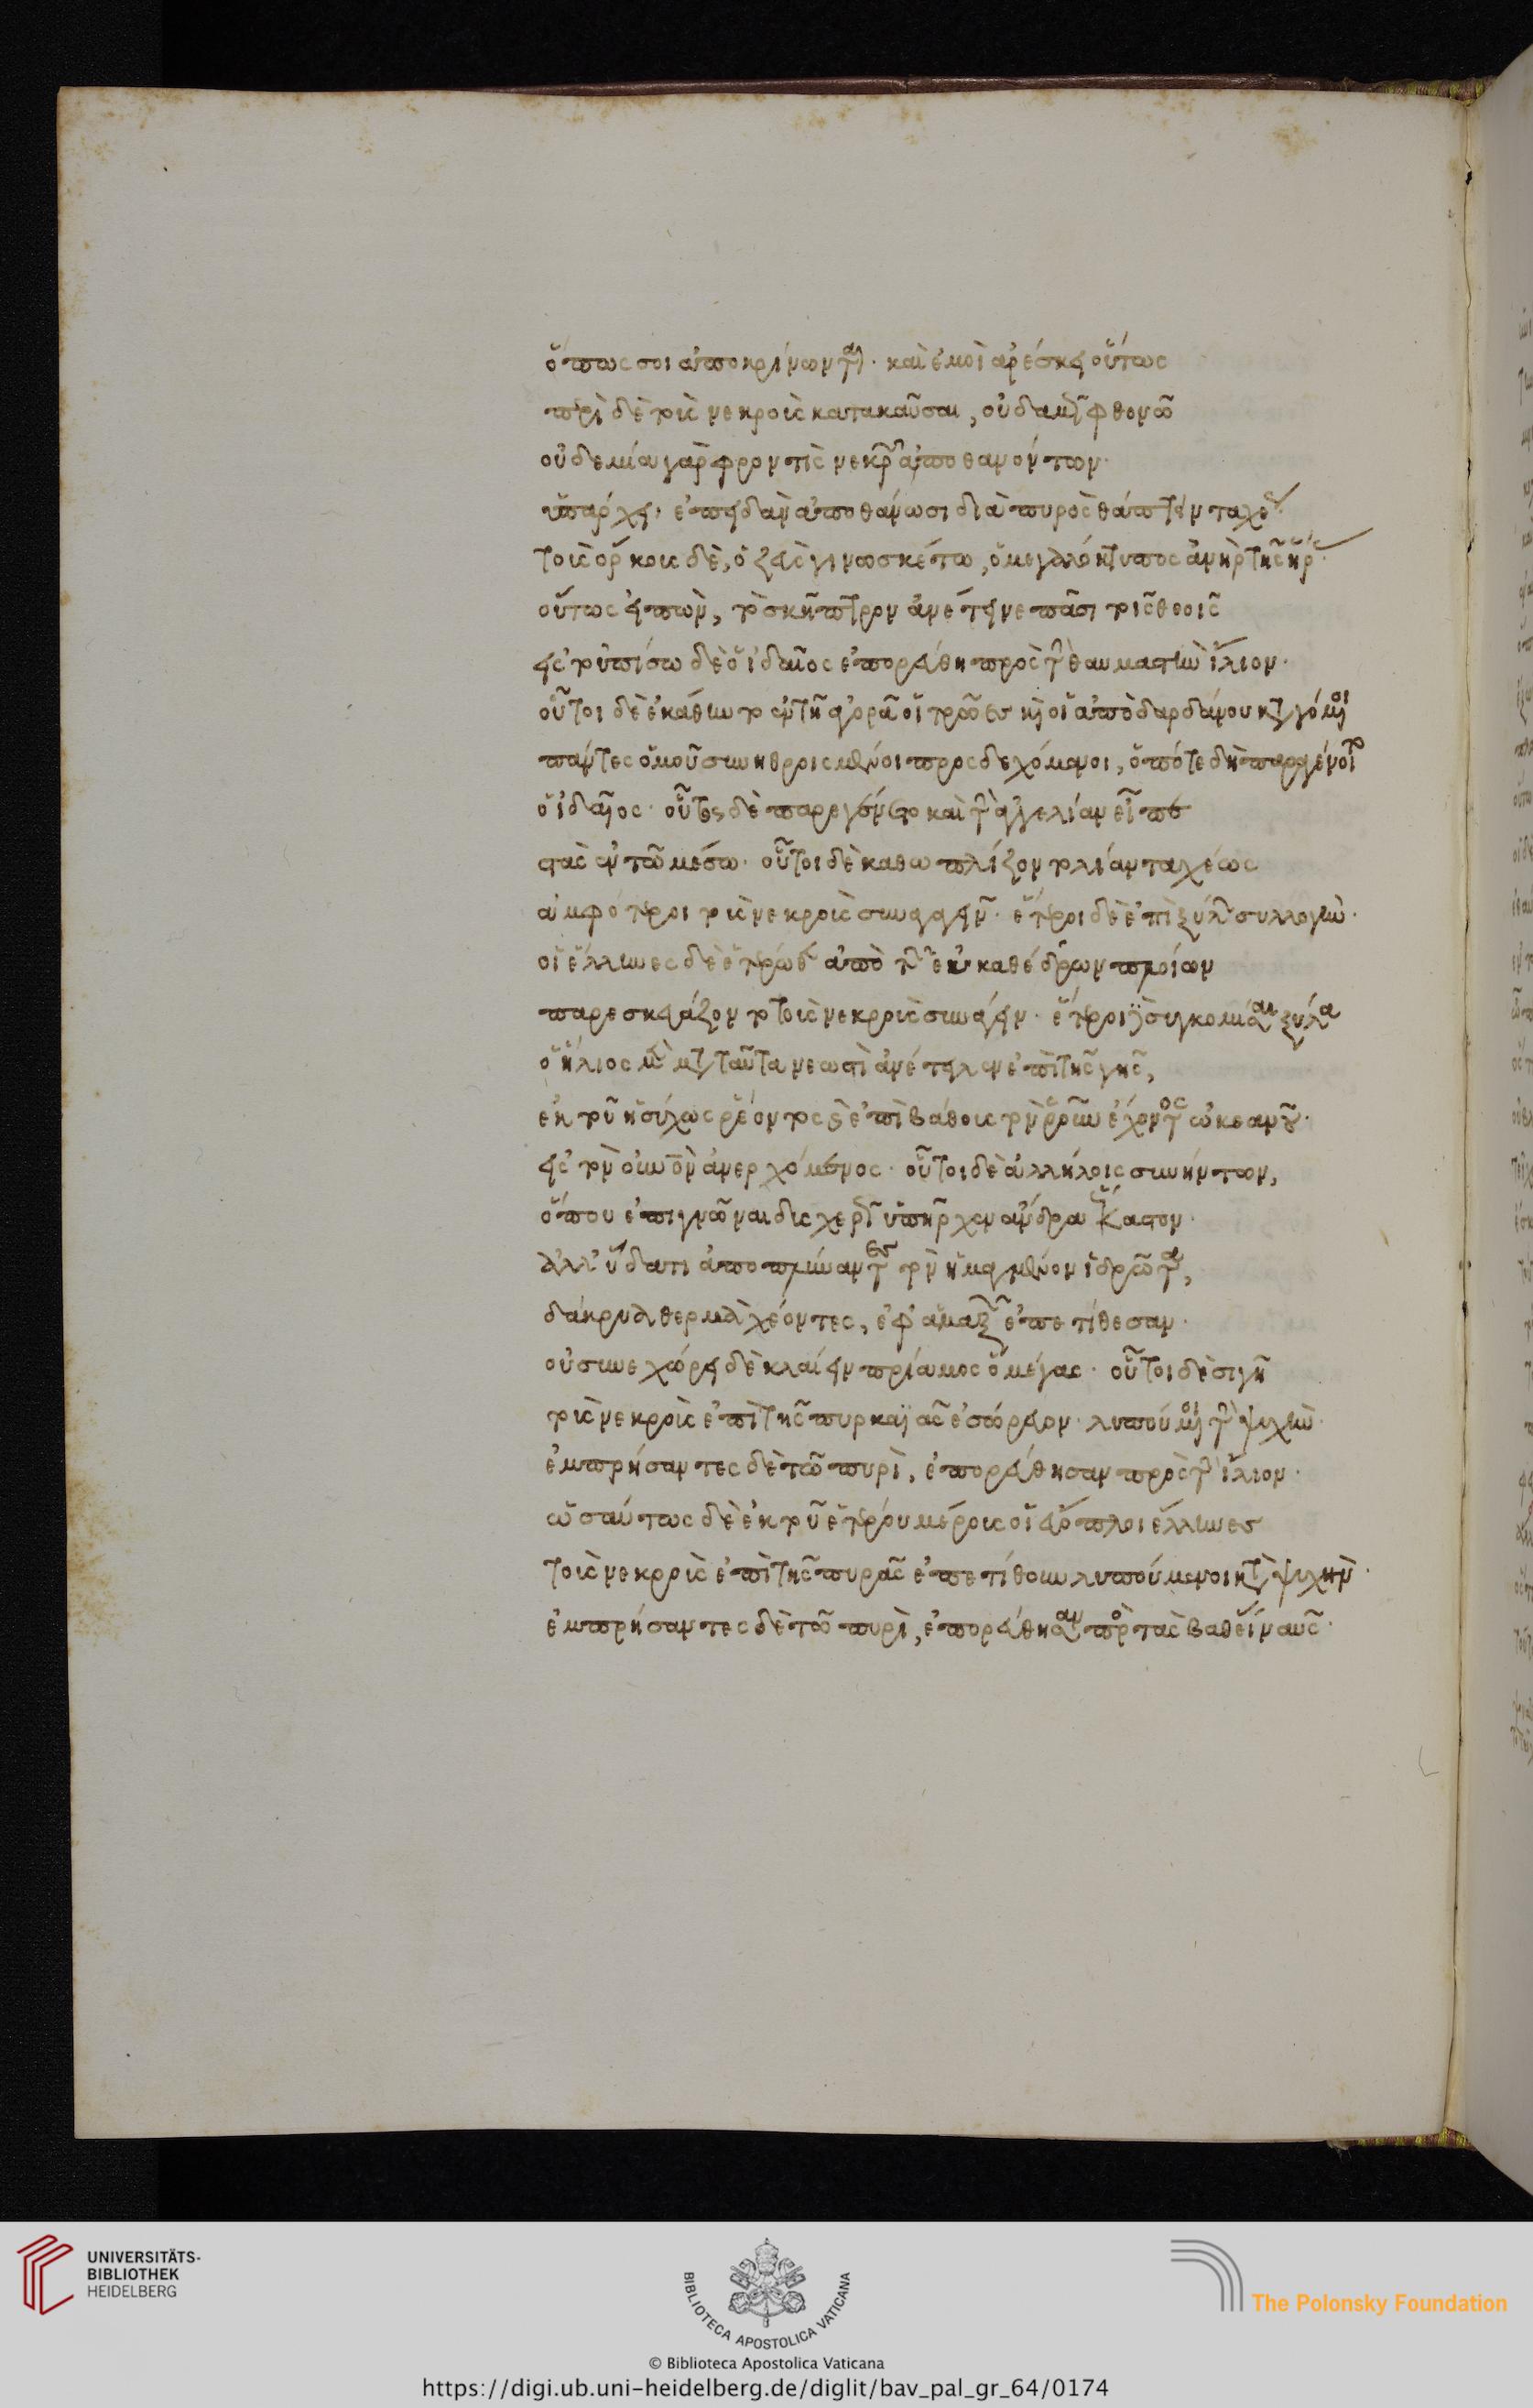 ὅπως σοι ἀποκρίνωνται· καὶ ἐμοὶ ἀρέσκει οὕτως
περὶ δὲ τοὺς νεκροὺς κατακαῦσαι, οὐδαμῶς φθονῶ
οὐδεμία γὰρ φροντὶς νεκρῶν ἀποθανόντων·
ὑπάρχει, ἐπειδὰν ἀποθάνωσι διὰ πυρὸς θάπτειν ταχέως
τοὺς ὅρκους δὲ, ὁ ζεὺς γινωσκέτω, ὁ μεγαλόκτυπος ἀνὴρ τῆς ἥρας
οὕτως εἰπὼν, τὸ σκῆπτρον ἀνέτεινε πᾶσι τοῖς θεοῖς
εἰς τοὐπίσω δὲ ὁ ἰδαῖος ἐπορεύθη πρὸς τὴν θαυμαστὴν ἴλιον·
οὗτοι δὲ ἐκάθηντο ἐν τῇ ἀγορᾷ οἱ τρῶες καὶ οἱ ἀπὸ δαρδάνου καταγόμενοι
πάντες ὁμοῦ συνηθροισμένοι προσδεχόμενοι, ὁπότε δὴ παραγένοιτο
ὁ ἰδαῖος· οὗτος δὲ παρεγένετο καὶ τὴν ἀγγελίαν εἶπε
στὰς ἐν τῷ μέσω· οὗτοι δὲ καθωπλίζοντο λίαν ταχέως
ἀμφότεροι τοὺς νεκροὺς συναγαγεῖν· ἕτεροι δὲ ἐπὶ ξύλων συλλογὴν·
οἱ ἕλληνες δὲ ἑτέρωθεν ἀπὸ τῶν εὐκαθέδρων πλοίων
παρεσκευάζοντο τοὺς νεκροὺς συνάγειν· ἕτεροι δὲ συγκομίσαι ξύλα
ὁ ἥλιος μὲν μετὰ ταῦτα νεωστὶ ἀνέτειλεν ἐπὶ τῆς γῆς,
ἐκ τοῦ ἡσύχως ῥέοντος καὶ ἐπὶ βάθους τὸν ῥοῦν ἔχοντος ὠκεανοῦ·
εἰς τὸν οὐνὸν ἀνερχόμενος· οὗτοι δὲ ἀλλήλοις συνήντων,
ὅπου ἐπιγνῶναι δυσχερῶς ὑπῆρχεν ἄνδρα ἕκαστον·
ἀλλ' ὕδατι ἀποπλύναντες τὸν ἡμαγμένον ἱδρῶτα,
δάκρυα θερμὰ χέοντες, ἐφ' ἁμαξῶν ἐπετίθεσαν·
οὐ συνεχώρει δὲ κλαίειν πρίαμος ὁ μέγας· οὗτοι δὲ σιγῇ
τοὺς νεκροὺς ἐπὶ τῆς πυρκαϊᾶς ἐσώρευον· λυπούμενοι τὴν ψυχὴν·
ἐμπρήσαντες δὲ τῷ πυρὶ, ἐπορεύθησαν πρὸς τὴν ἴλιον·
ὡσαύτως δὲ ἐκ τοῦ ἑτέρου μέρους οἱ εὔοπλοι ἕλληνες
τοὺς νεκροὺς ἐπὶ τῆς πυρᾶς ἐπετίθουν λυπούμενοι κατὰ ψυχὴν·
ἐμπρήσαντες δὲ τῷ πυρὶ, ἐπορεύθησαν πρὸς τὰς βαθείας ναῦς·
UNIVERSITÄTS-
BIBLIOTHEK
HEIDELBERG
BIBLIOTECA APOSTOLICA VATICANA
The Polonsky Foundation
© Biblioteca Apostolica Vaticana
https://digi.ub.uni-heidelberg.de/diglit/bav_pal_gr_64/0174